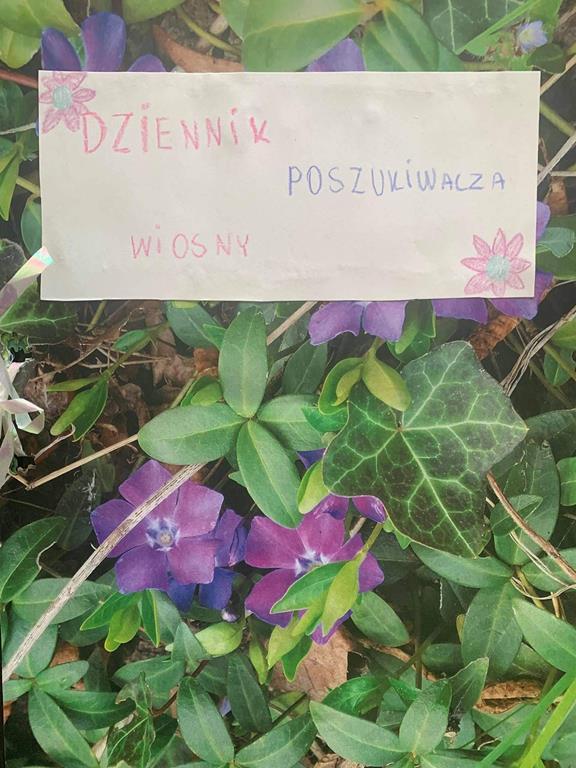 DZiENNiK
POSZUKiWACZA
WiOSNY